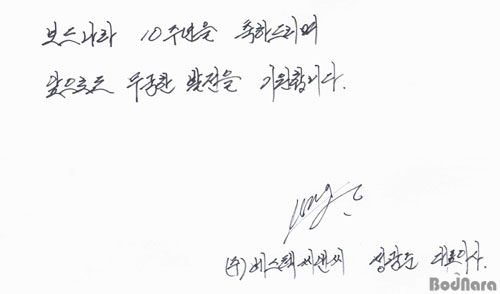 보드나라 10주년을 축하드리며
앞으로도 무궁한 발전을 기원합니다.
(주)베스텍씨앤씨 대표이사.
BodNara